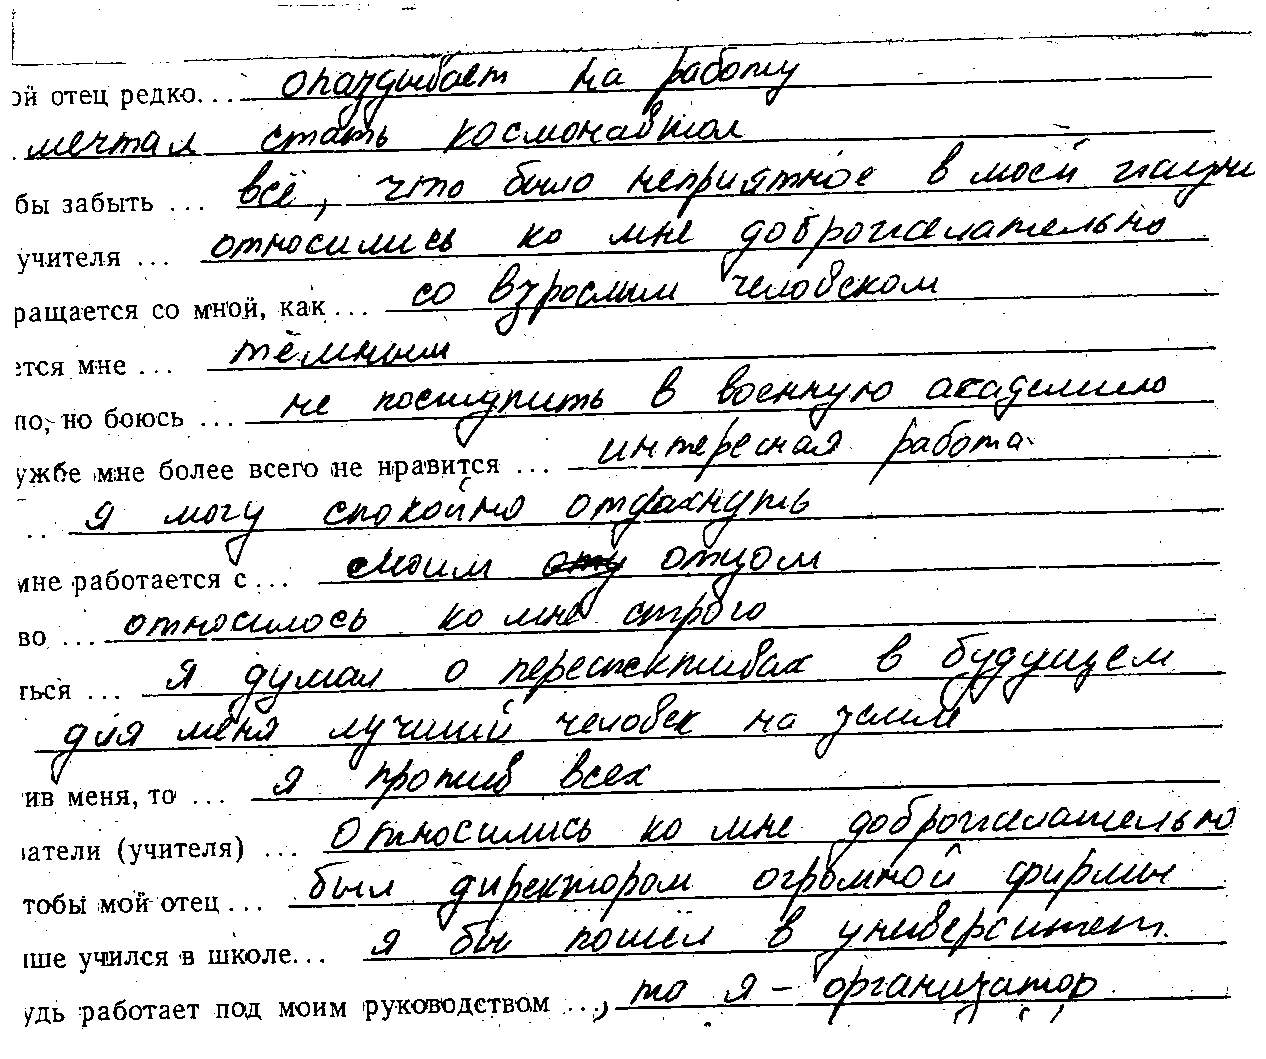 ой отец редко... опаздывает на работу
мечтал стать космонавтом
бы забыть ... всё, что было неприятное в моей жизни
учителя ... относились ко мне доброжелательно
ращается со мной, как ... со взрослым человеком
ется мне ... тёмным
по, но боюсь ... не поступить в военную академию
ужбе мне более всего не нравится ... интересная работа
.. я могу спокойно отдохнуть
мне работается с ... с моим отцом
во ... относилось ко мне строго
ться ... я думал о перспективах в будущем
для меня лучший человек на земле
ив меня, то ... я против всех
атели (учителя) ... относились ко мне доброжелательно
тобы мой отец ... был директором огромной фирмы
ше учился в школе... я бы пошёл в университет.
удь работает под моим руководством ..., то я - организатор